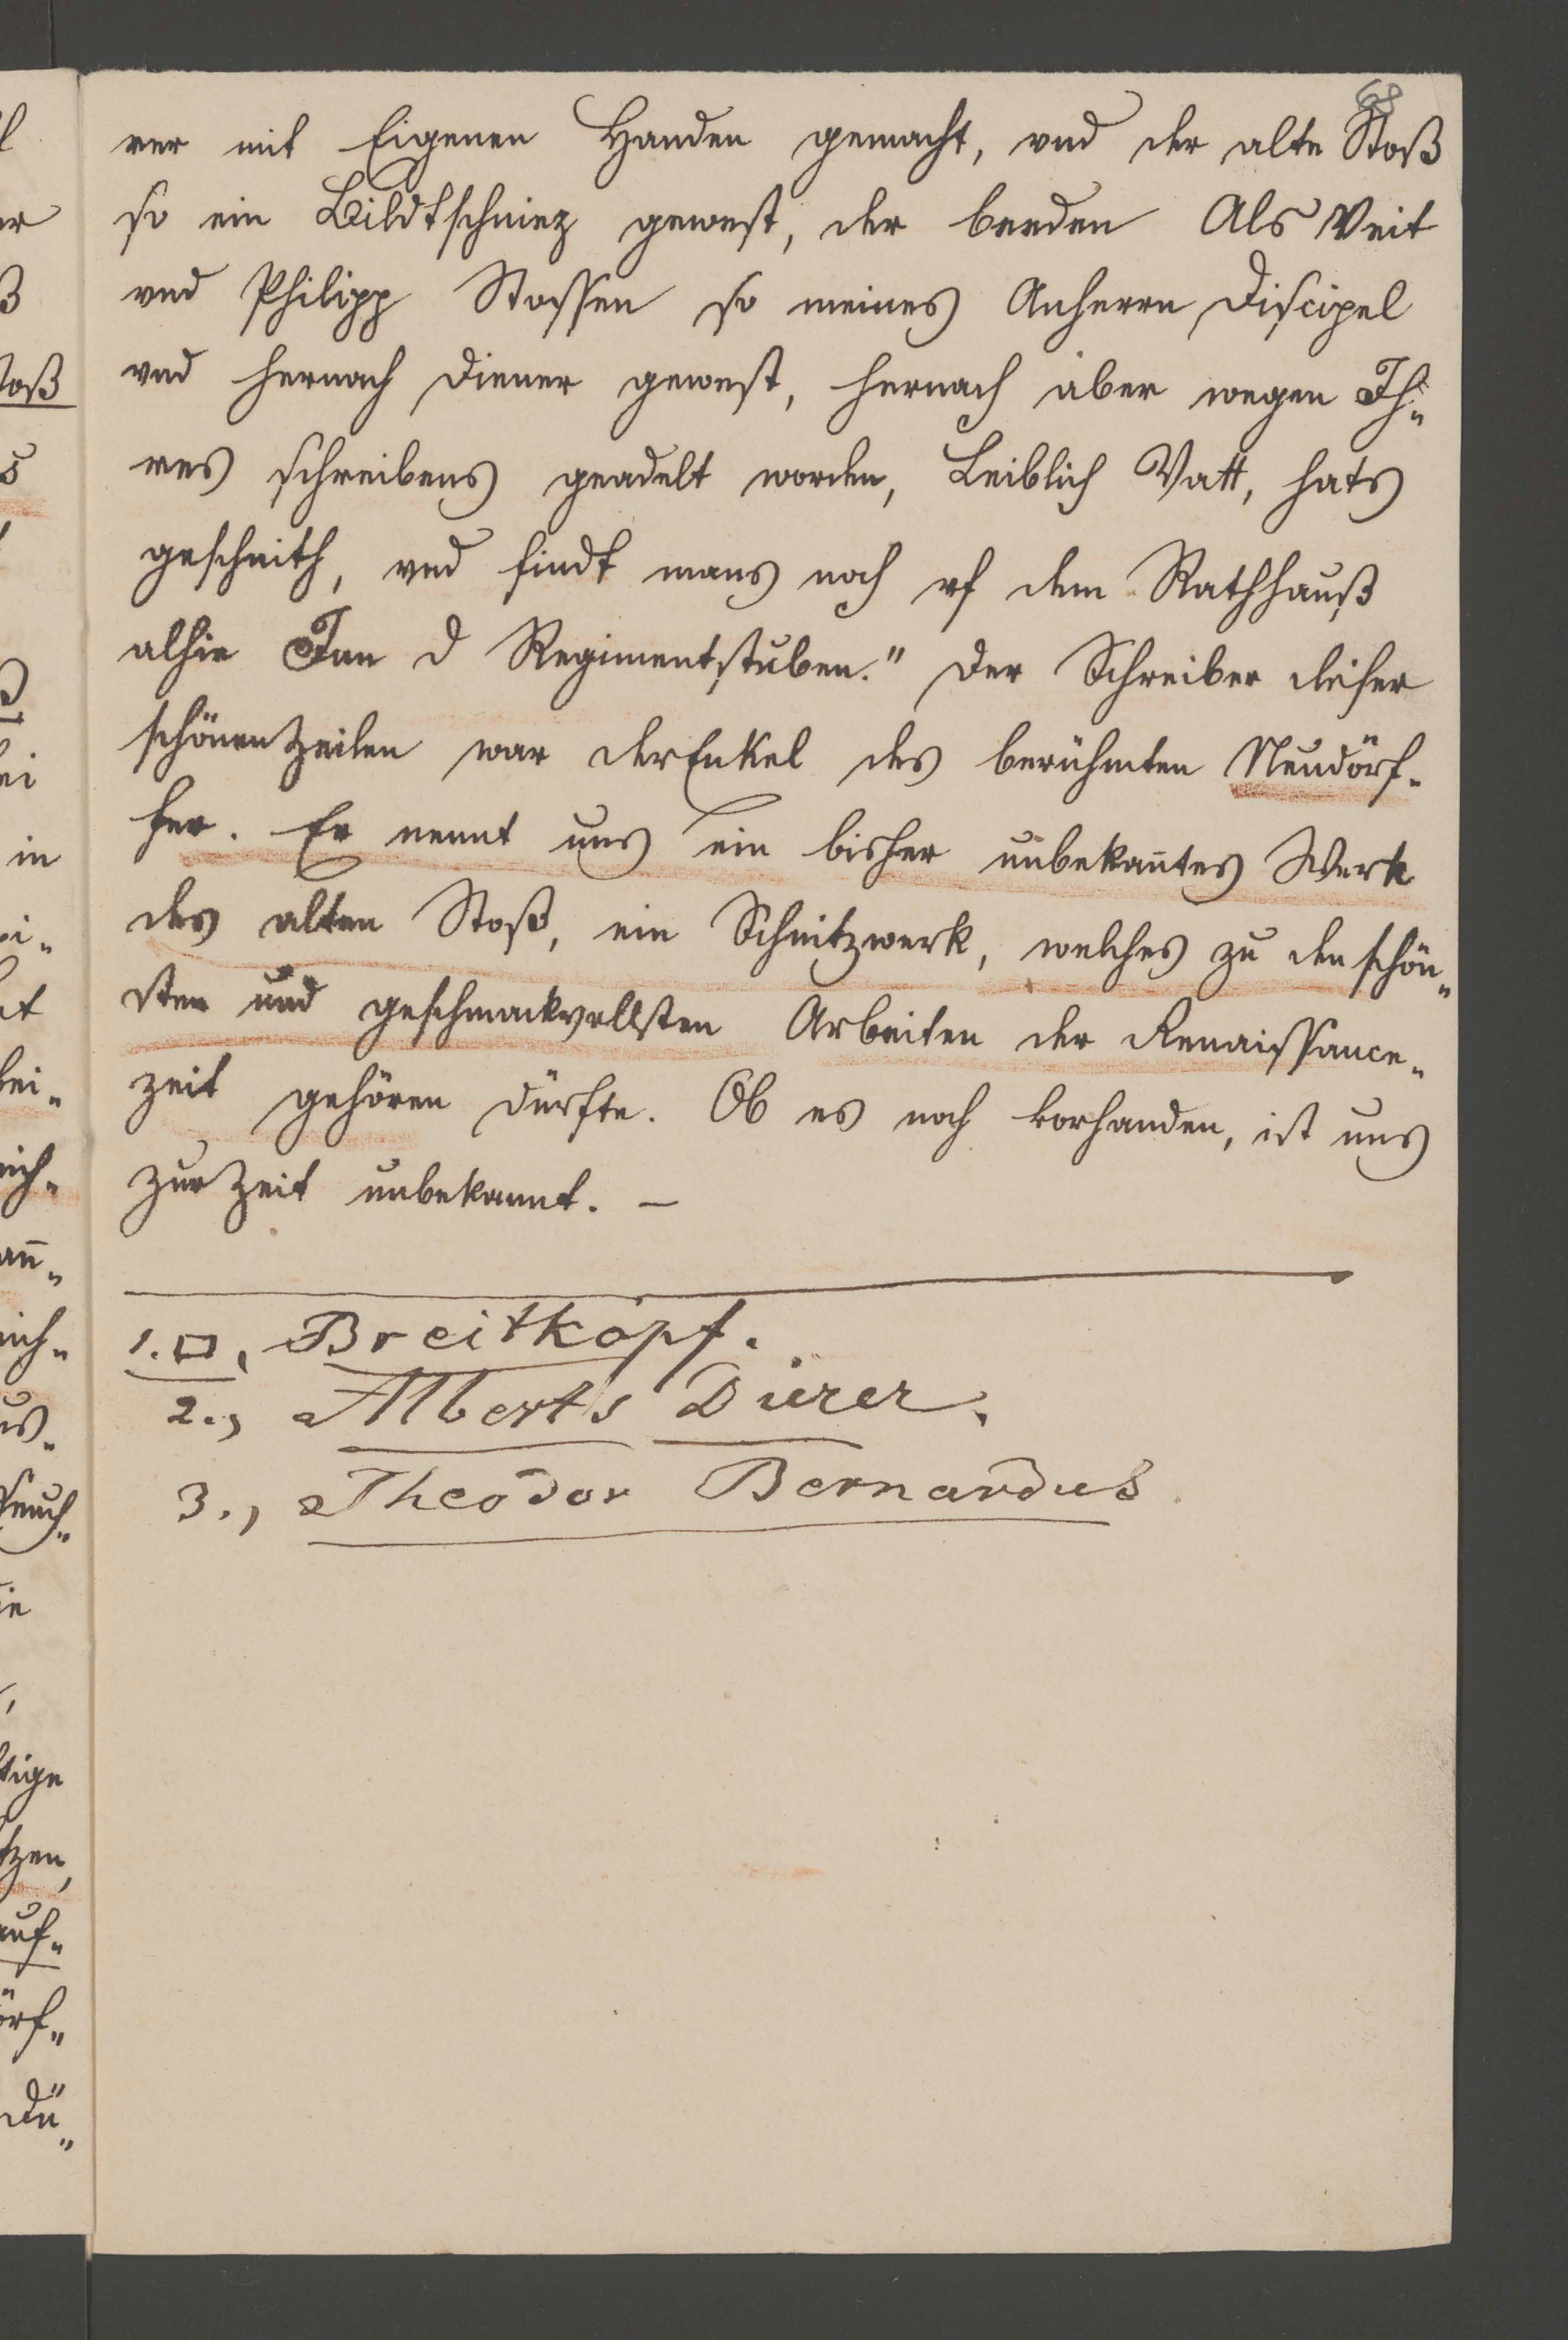 68
rer mit Eigenen Handen gemacht, vnd der alte Stoß
so ein Bildtschniez gewest, der beeden Als Veit
vnd Philipp Stossen so meines Anherrn Discipel
vnd hernach Diener gewest, hernach aber wegen Ih„
res schreibens geadelt worden, Leiblich Vatt, hats
geschnith, vnd findt mans noch vf dem Rathhauß
alhie Inn d Regimentstuben." Der Schreiber dieser
schönen Zeilen war der Enkel des berühmten Neudörf„
fer. Er nennt uns ein bisher unbekan̄tes Werk
des alten Stoß, ein Schnitzwerk, welches zu den schön„
sten und geschmackvollsten Arbeiten der Renaissance„
zeit gehören dürfte. Ob es noch vorhanden, ist uns
zur Zeit unbekannt. –
1. □, Breitkopf.
2., Alberts Dürer.
3., Theodor Bernardus